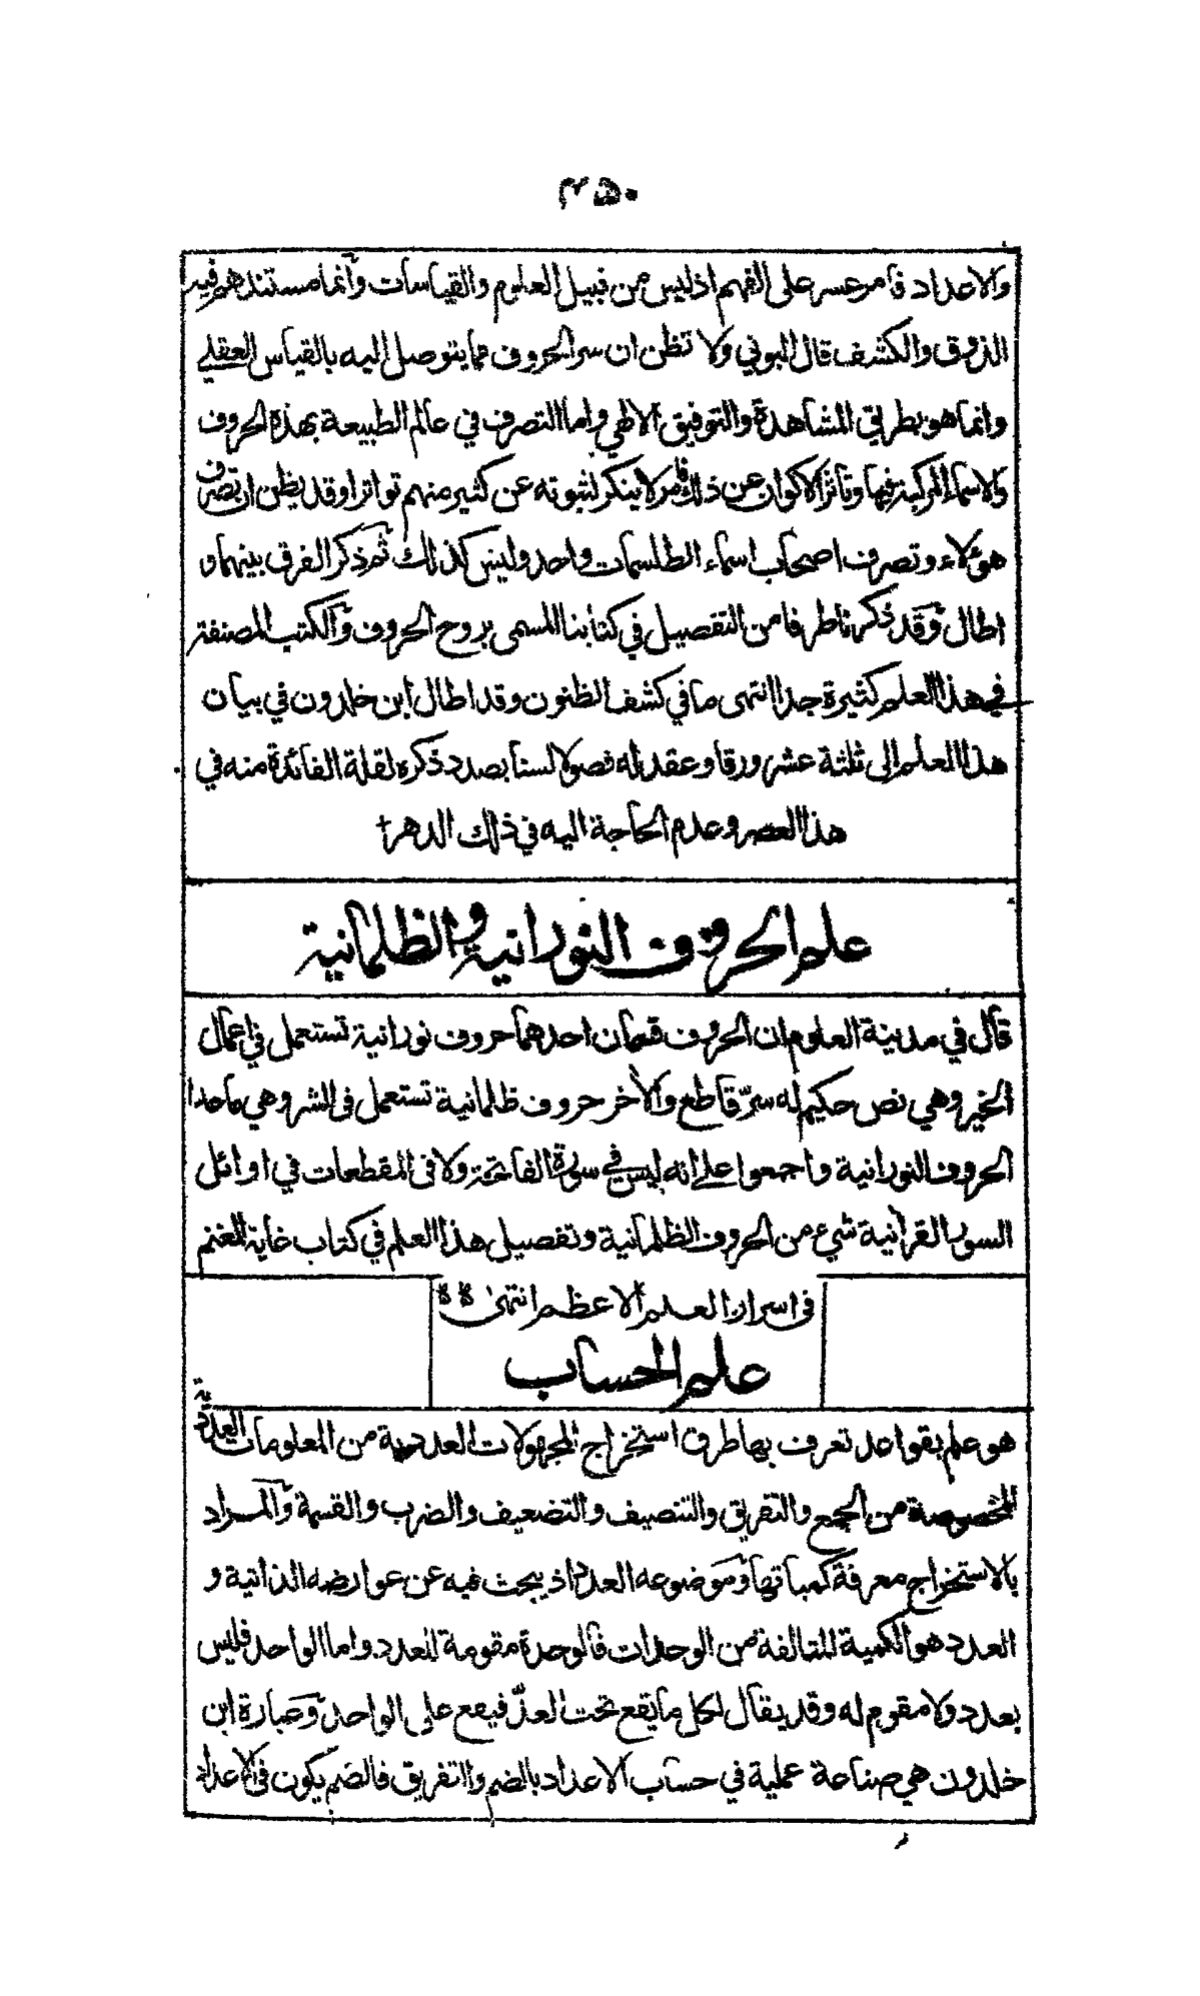 ۴۵۰
والاعداد فامر عسر على الفهم اذ ليس من قبيل العلوم والقياسات وانما مستندهم فيه
الذوق والكشف قال البوني ولا تظن ان سر الحروف مما يتوصل اليه بالقياس العقلي
وانما هو بطريق المشاهدة والتوفيق الالهي واما التصرف في عالم الطبيعة بهذه الحروف
والاسماء المركبة فيها وتاثر الاكوان عن ذلك فامر لا ينكر لثبوته عن كثير منهم تواترا وقد يظن ان تصرف
هؤلاء وتصرف اصحاب اسماء الطلسمات واحد وليس كذلك ثم ذكر الفرق بينهما و
اطال وقد ذكرنا طرفا من التفصيل في كتابنا المسمى بروح الحروف والكتب المصنفة
في هذا العلم كثيرة جدا انتهى ما في كشف الظنون وقد اطال ابن خلدون في بيان
هذا العلم الى ثلثة عشر ورقا وعقد له فصولا لسنا بصدد ذكره لقلة الفائدة منه في
هذا العصر وعدم الحاجة اليه في ذلك الدهر
علم الحروف النورانية والظلمانية
قال في مدينة العلوم ان الحروف قسمان احدهما حروف نورانية تستعمل في اعمال
الخير وهي نص حكيم له سرّ قاطع والآخر حروف ظلمانية تستعمل في الشر وهي ما عدا
الحروف النورانية واجمعوا على انه ليس في سورة الفاتحة ولا في المقطعات في اوائل
السور القرآنية شيء من الحروف الظلمانية وتفصيل هذا العلم في كتاب غاية المغنم
في اسرار العلم الاعظم انتهى
علم الحساب
هو علم بقواعد تعرف بها طرق استخراج المجهولات العددية من المعلومات العددية
المخصوصة من الجمع والتفريق والتنصيف والتضعيف والضرب والقسمة والمراد
بالاستخراج معرفة كمياتها وموضوعه العدد اذ يبحث فيه عن عوارضه الذاتية و
العدد هو الكمية المتالفة من الوحدات فالوحدة مقومة للعدد واما الواحد فليس
بعدد ولا مقوم له وقد يقال لكل ما يقع تحت العدّ فيقع على الواحد وعبارة ابن
خلدون هي صناعة عملية في حساب الاعداد بالضم والتفريق فالضم يكون في الاعداد